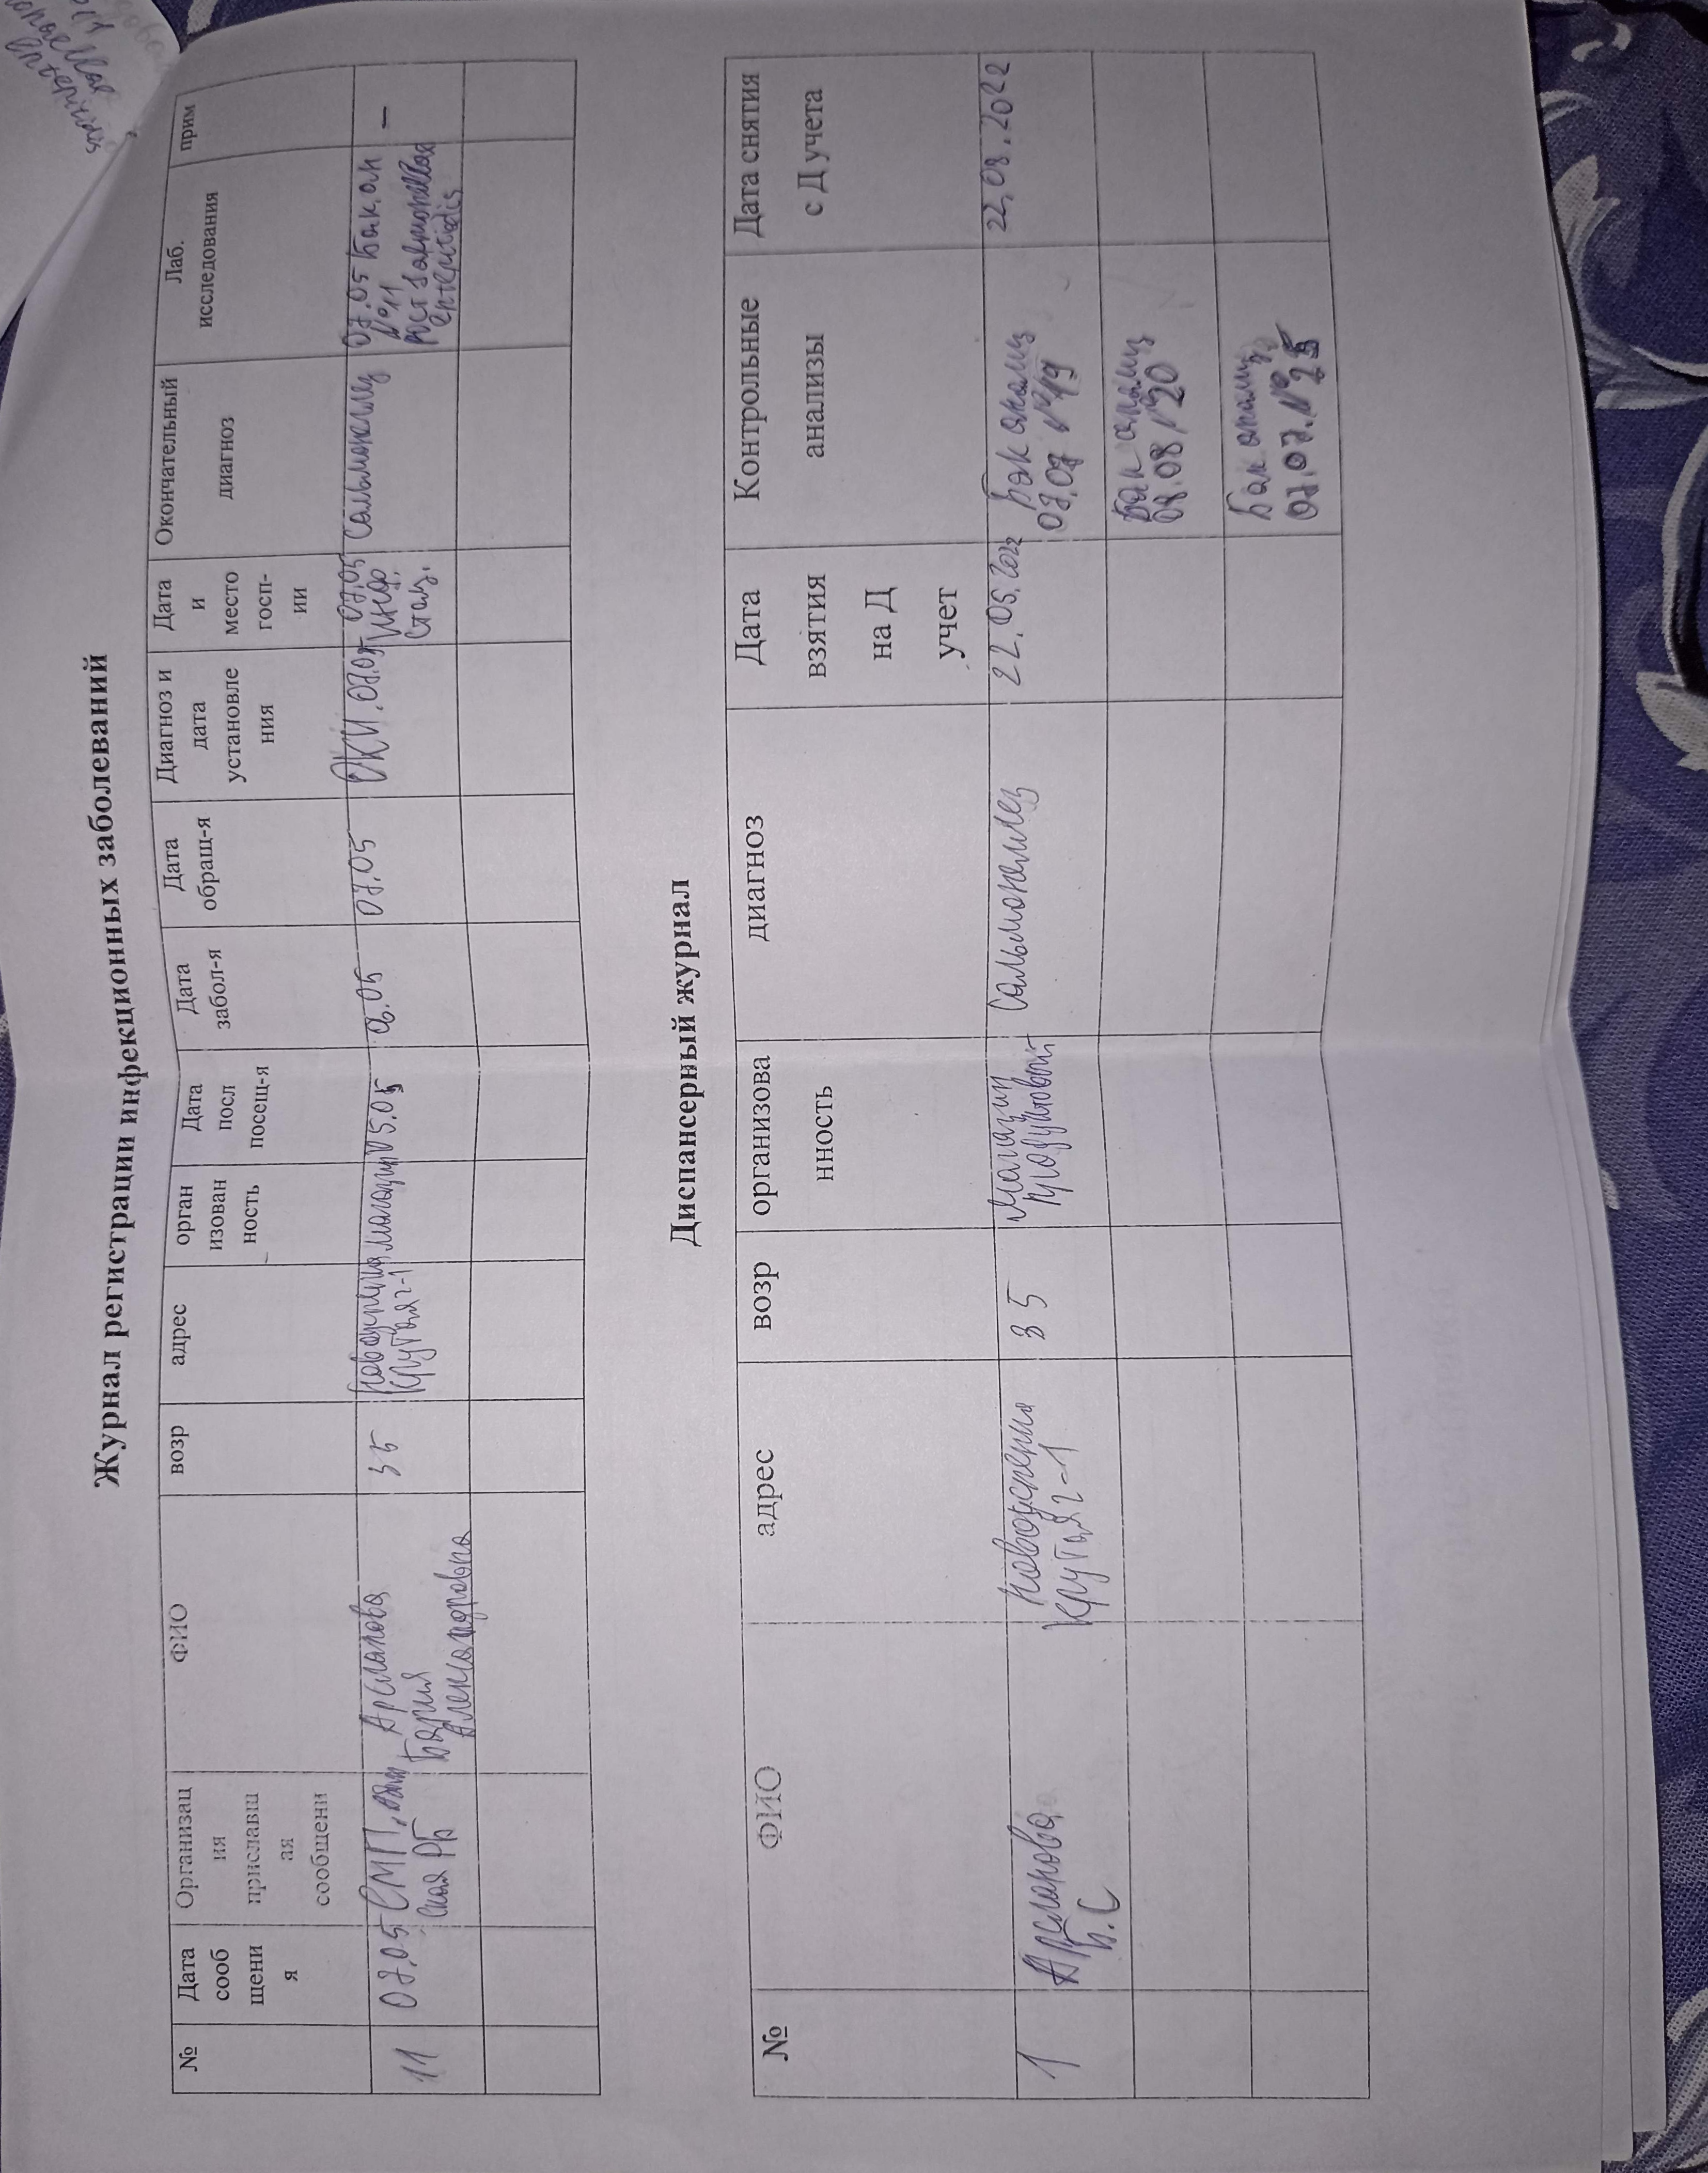 Журнал регистрации инфекционных заболеваний
№
Дата
сооб
щени
я
Организац
ия
приславш
ая
сообщени
ФИО
возр
адрес
орган
изован
ность
Дата
посл
посещ-я
Дата
забол-я
Дата
обращ-я
Диагноз и
дата
установле
ния
Дата
и
место
госп-
ии
Окончательный
диагноз
Лаб.
исследования
прим
11
07.05
СМП,
ская РБ
Арсланова
Бария
Александровна
35
Крутая 2-1
магазин
05.05
06.05
07.05
ОКИ. 07.05
07.05
Инф.
стац.
Сальмонеллез
07.05 Бак. ан
№11
Рост
–
Диспансерный журнал
№
ФИО
адрес
возр
организова
нность
диагноз
Дата
взятия
на Д
учет
Контрольные
анализы
Дата снятия
с Д учета
1
Арсланова
Б.С
Крутая 2-1
35
Магазин
продуктовый
Сальмонеллез
22.05.2022
Бак анализ
07.07 №19
22.08.2022
Бак анализ
08.08 №20
Бак анализ
07.07. №25